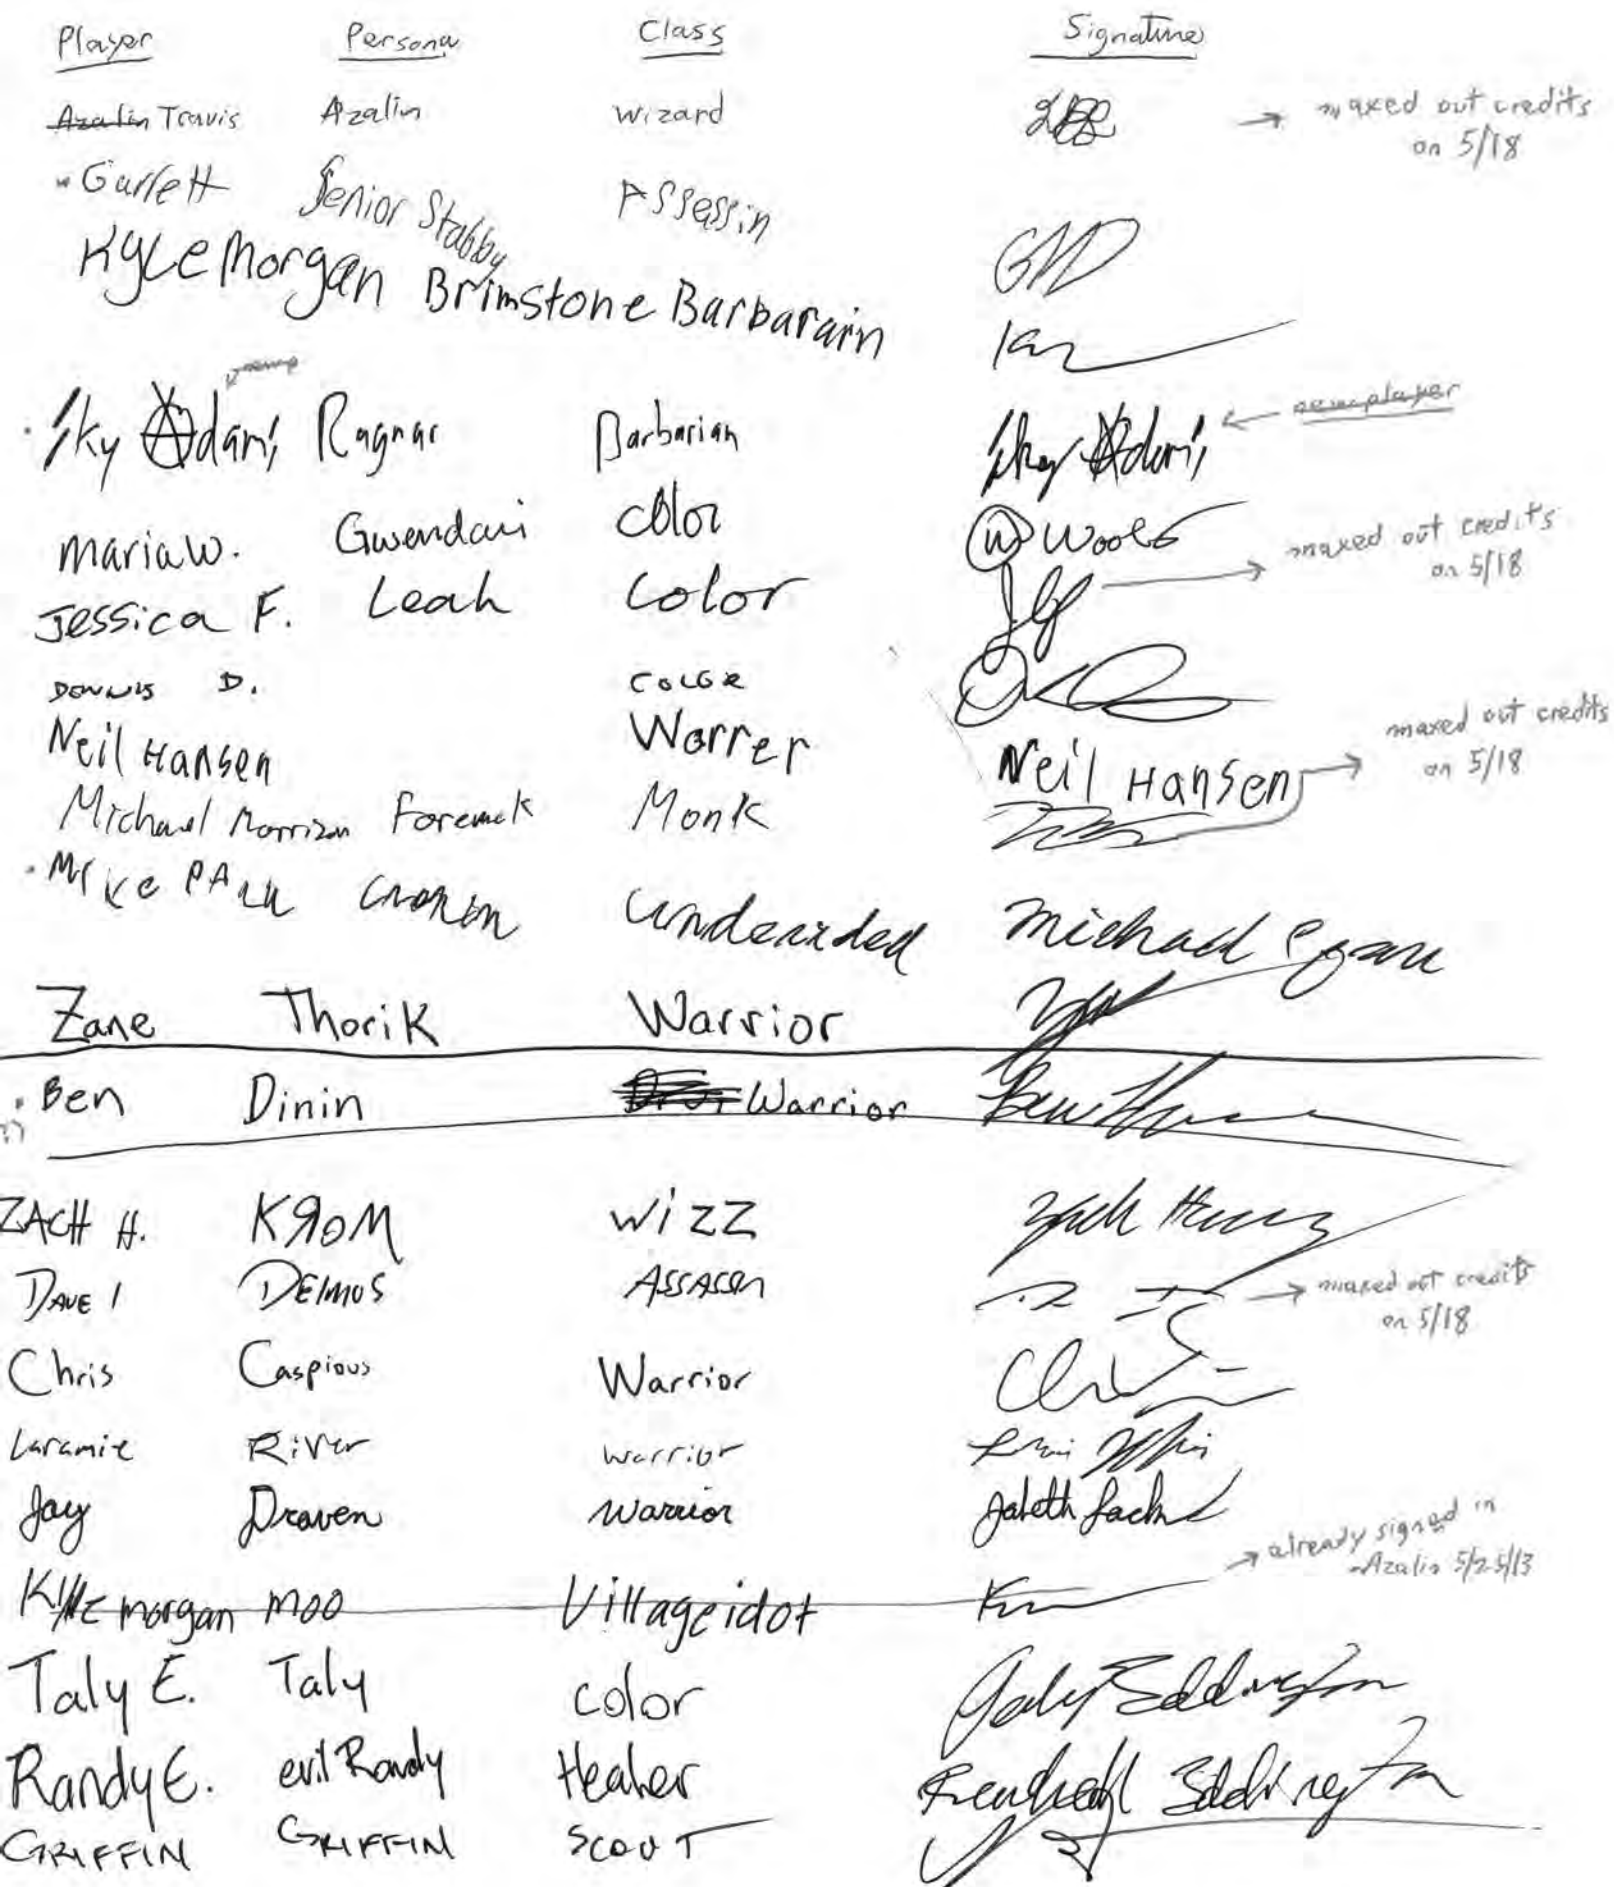 Player Persona Class Signature
Azalin Travis Azalin Wizard → maxed out credits
on 5/18
Garrett Senior Stabby Assessin
Kyle Morgan Brimstone Barbarain
Sky Adams Ragnar Barbarian Sky Adams ← new player
Maria W. Gwendani Color W Woolf
Jessica F. Leah Color → maxed out credits
on 5/18
Dennis D. Color
Neil Hansen Worrer Neil Hansen
→ maxed out credits
on 5/18
Michael Morrison Foremak Monk
Mike Undecided Michael
Zane Thorik Warrior
Ben Dinin Warrior Ben
ZACH H. KЯOM Wizz Zach
Dave I Deimos Assassin → maxed out credits
on 5/18
Chris Caspious Warrior
Laramie River Warrior
Jay Draven Warrior
Kyle morgan moo Village idot → already signed in
Azalin
Taly E. Taly Color Taly Eddington
Randy E. evil Randy Healer Eddington
GRIFFIN GRIFFIN SCOUT